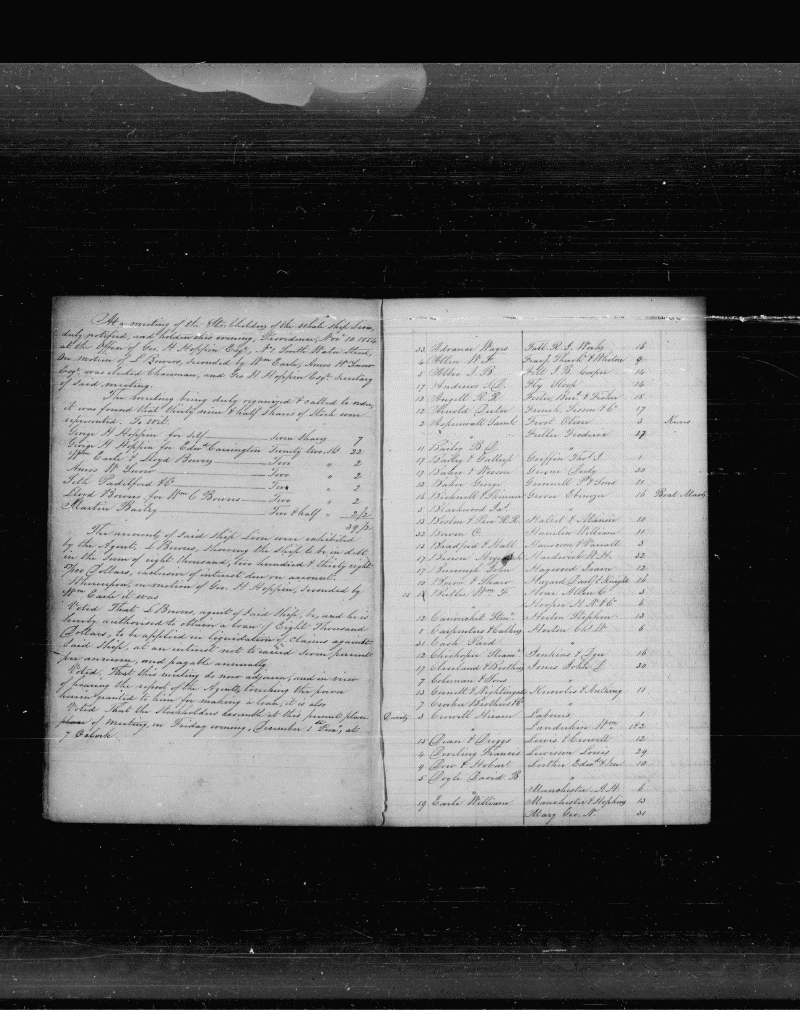 At a meeting of the Stockholders of the whale Ship Lion,
duly notified, and holden this evening, Providence, Nov 10 1854
at the Office of Geo. H Hoppin Esqr, No 1 South Water Street,
On motion of L Bowers, seconded by Wm Earle, Amos W Snow
Esqr. was elected Chairman, and Geo H Hoppin Esqr Secretary
of said meeting.
The meeting being duly organized & called to order,
it was found that thirty nine & half Shares of Stock were
represented. To Wit.
George H Hoppin for self Seven Shares 7
George H Hoppin for Edwd Carrington Twenty two do 22
Wm Earle & Lloyd Bowers Two " 2
Amos W Snow Two " 2
Seth Padelford & Co Two " 2
Lloyd Bowers for Wm C Bowers Two " 2
Martin Bailey Two & half " 2 1/2
39 1/2
The accounts of said Ship Lion were exhibited
by the Agent, L Bowers, showing the ship to be in debt
in the Sum of eight thousand, two hundred & thirty eight
/100 Dollars, exclusive of interest due on account.
Whereupon, on motion of Geo. H Hoppin, seconded by
Wm Earle it was
Voted That L Bowers, agent of said Ship, be, and he is
hereby authorised to obtain a loan of Eight Thousand
Dollars, to be applied in liquidation of claims against
said Ship, at an interest not to exceed seven percent
per annum, and payable annually.
Voted. That this meeting do now adjourn, and in view
of hearing the report of the Agent, touching the power
herein granted to him, for making a loan, it is also
Voted That the Stockholders assemble at this present place
of meeting, on Friday evening, December 1st Prox, at
7 Oclock.
33 Advance Wages
4 Allen W F
17 Allen S B
17 Andrews
13 Angell R R
12 Arnold
2 Aspinwall Saml
"
11 Bailey B D
17 Bailey & Gallup
17 Baker & Wesson
12 Baker George
16 Bicknell &
5 Blackwood Jas
13 Boston & Prov R.R.
33 Bowen C
13 Bradford & Hall
17 Brown
17 Burrough John
10 Burr & Shaw
15 18 Butler Wm F
"
12 Canonchet
1 Carpenters &
31 Cash Paid
12 Chickopee
17 Cleveland & Brothers
7 Coleman & Sons
13 Cornell & Nightingale
7 Crocker Brothers & Co
3 Crowell Hiram
"
15 Dean & Driggs
4 Dowling Francis
9 Dow & Hobart
5 Doyle David B
"
19 Earle William
Fall R. I. Works 15
Fearf, Thach & Wheton 9
Fitt J B Cooper 14
Fly Sloop 14
Foster Benj & Fisher 15
French, & Co 17
Frost Oliver 3
Fuller Frederic 27
"
Griffin Thos J 1
Green 30
Grinnell P & Sons 11
Grove Ebenezer 16 Boat
"
Hallet & 10
Hamlin William 11
3
Hardwick W H 32
Haywood Isaac 12
Hazard Danl & Knight 16
Hoar Allen C 3
Hooper 6
Horton Stephen 13
Horton Chs W 6
"
Jenkins & Lyon 16
Jones John D 30
"
Knowles & Anthony 13
"
Labours
Landerkin Wm 1 & 2
Lewis & Crowell 12
Lewisson Louis 29
Luther Edw & Son 10
"
Manchester A H 6
Manchester & Hopkins 13
Mary Geo. N 31